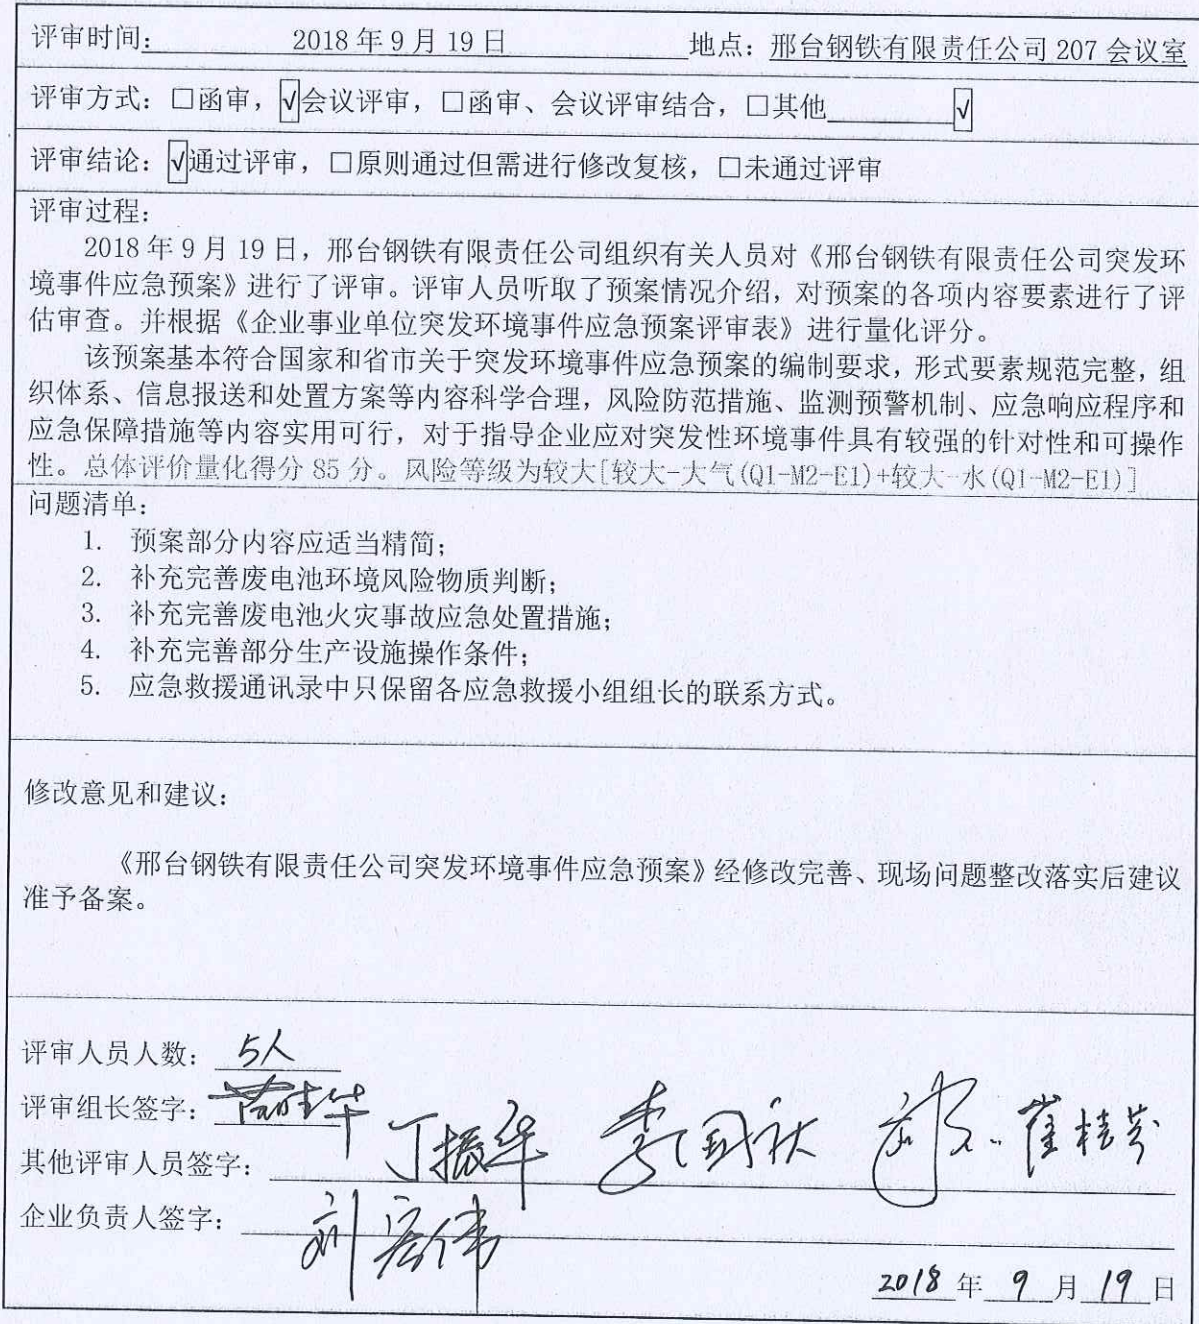 评审时间: 2018年9月19日 地点: 邢台钢铁有限责任公司 207 会议室
评审方式: □函审, √会议评审, □函审、会议评审结合, □其他 √
评审结论: √通过评审, □原则通过但需进行修改复核, □未通过评审
评审过程:
2018年9月19日, 邢台钢铁有限责任公司组织有关人员对《邢台钢铁有限责任公司突发环
境事件应急预案》进行了评审。评审人员听取了预案情况介绍, 对预案的各项内容要素进行了评
估审查。并根据《企业事业单位突发环境事件应急预案评审表》进行量化评分。
该预案基本符合国家和省市关于突发环境事件应急预案的编制要求, 形式要素规范完整, 组
织体系、信息报送和处置方案等内容科学合理, 风险防范措施、监测预警机制、应急响应程序和
应急保障措施等内容实用可行, 对于指导企业应对突发性环境事件具有较强的针对性和可操作
性。总体评价量化得分 85 分。风险等级为较大[较大-大气(Q1-M2-E1)+较大-水(Q1-M2-E1)]
问题清单:
1. 预案部分内容应适当精简;
2. 补充完善废电池环境风险物质判断;
3. 补充完善废电池火灾事故应急处置措施;
4. 补充完善部分生产设施操作条件;
5. 应急救援通讯录中只保留各应急救援小组组长的联系方式。
修改意见和建议:
《邢台钢铁有限责任公司突发环境事件应急预案》经修改完善、现场问题整改落实后建议
准予备案。
评审人员人数: 5人
评审组长签字:
其他评审人员签字: 丁振华 李国秋 崔桂芬
企业负责人签字: 刘宏伟
2018年9月19日